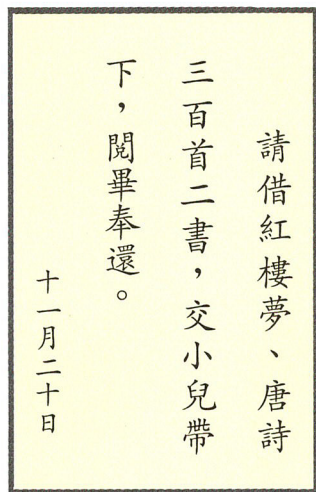 請借紅樓夢、唐詩
三百首二書，交小兒帶
下，閱畢奉還。
十一月二十日